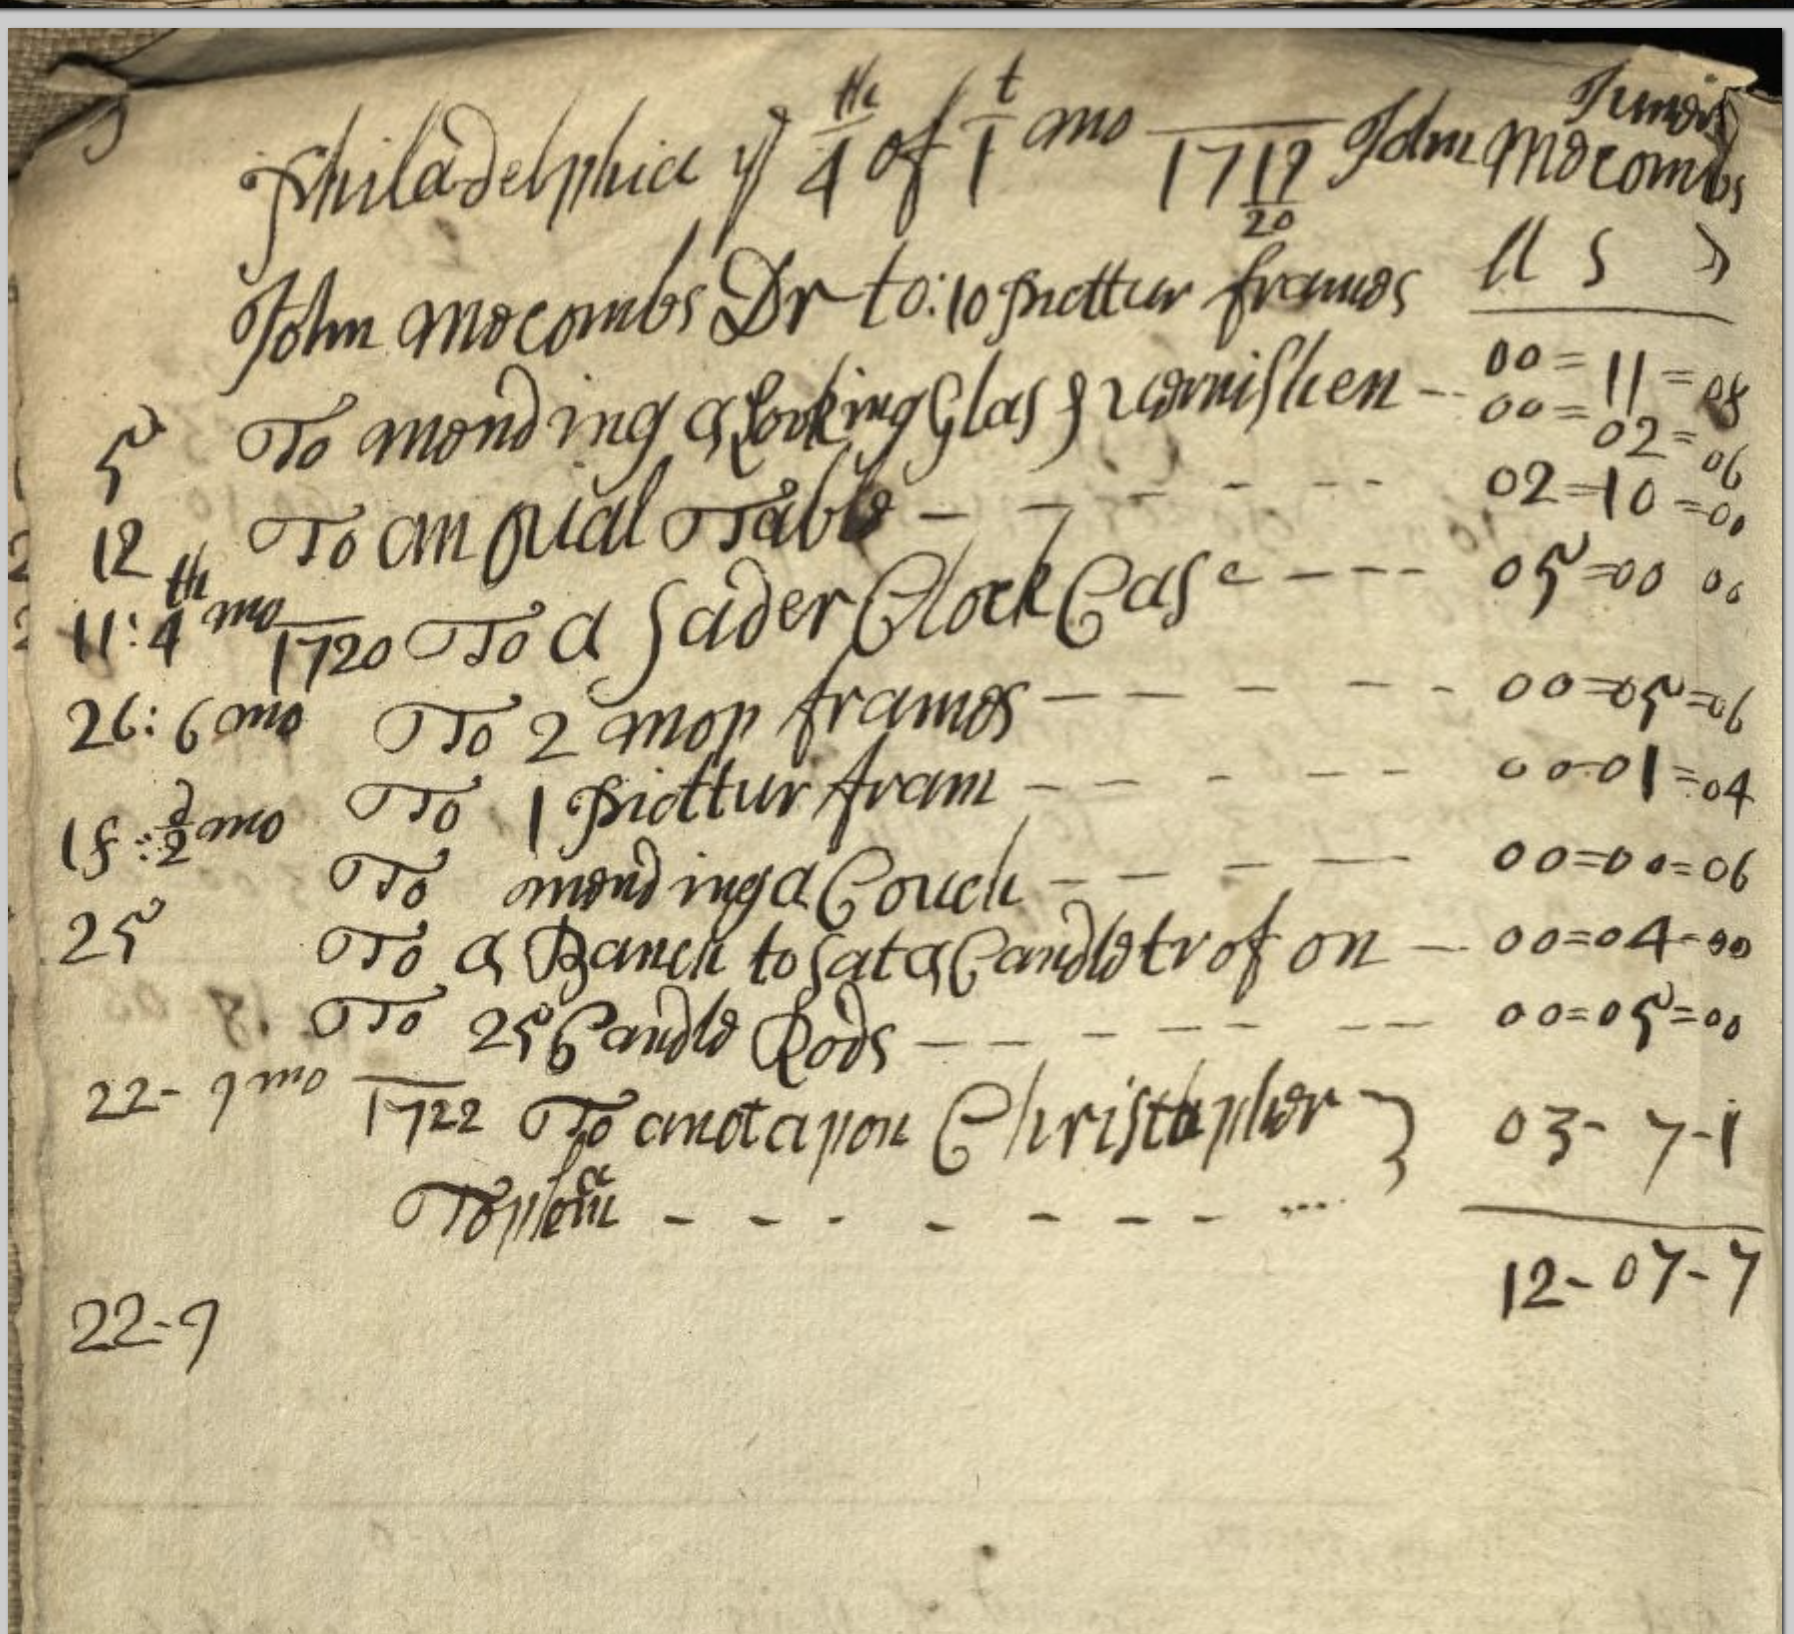 Philadelphia ye 4th of 1t mo 1719/20 John Mecombs Junior
ll s d
John Mecombs Dr to: 10 Picttur frames 00=11=08
5 To mending a Looking Glas & varnishen -- 00=02=06
12 To an ouial Table - - - - - - 02=10=00
11: 4th mo 1720 To a Sader Clock Case - - - - 05=00 00
26: 6 mo To 2 mop frames - - - - - 00=05=06
18: 2d mo To 1 Picttur fram - - - - - 00-01=04
To mending a Couch - - - - 00=00=06
25 To a Banch to Sat a Candle trof on - 00=04-00
To 25 Candle Rods - - - - - - 00=05=00
22- 9 mo 1722 To a not apon Christapher } 03- 7-1
- - - - - - - - ....
12-07-7
22-9